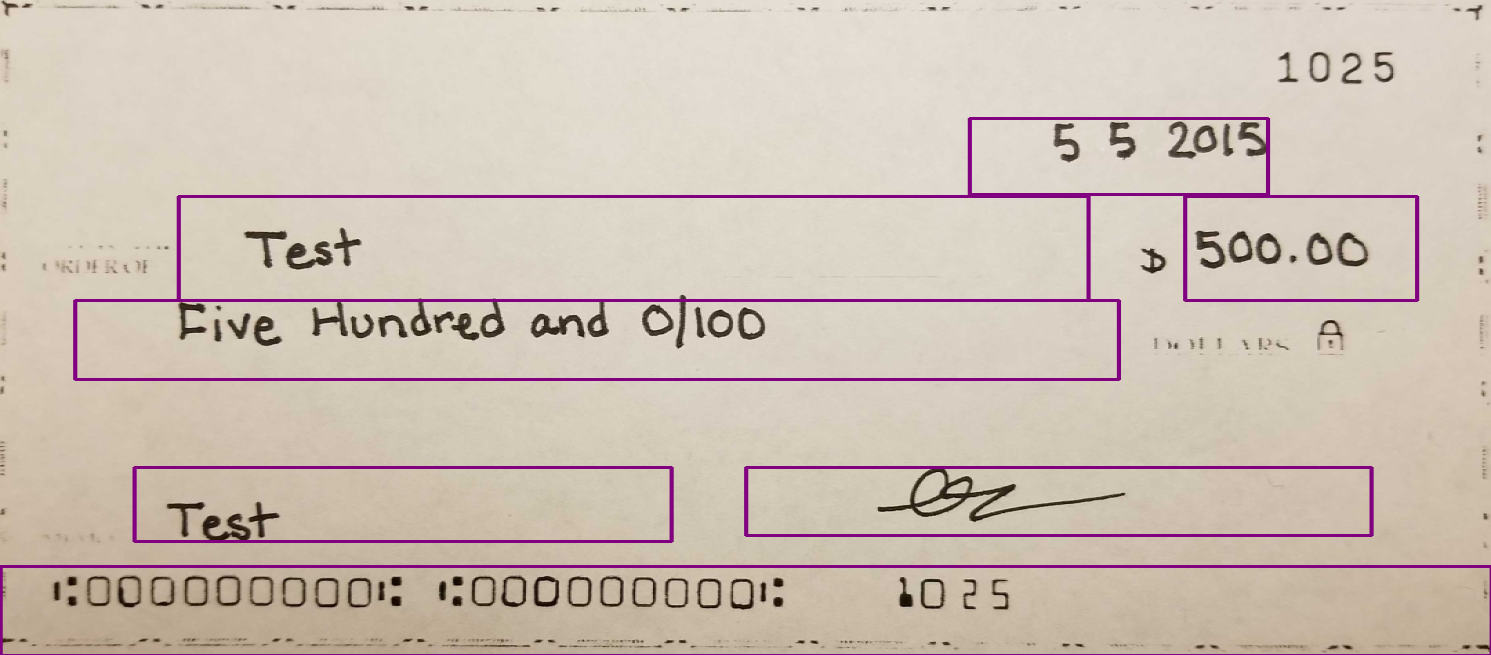 1025
5 5 2015
ORDER OF Test $ 500.00
Five Hundred and 0/100 DOLLARS
Test
⑆000000000⑆ ⑆000000000⑆ 1025